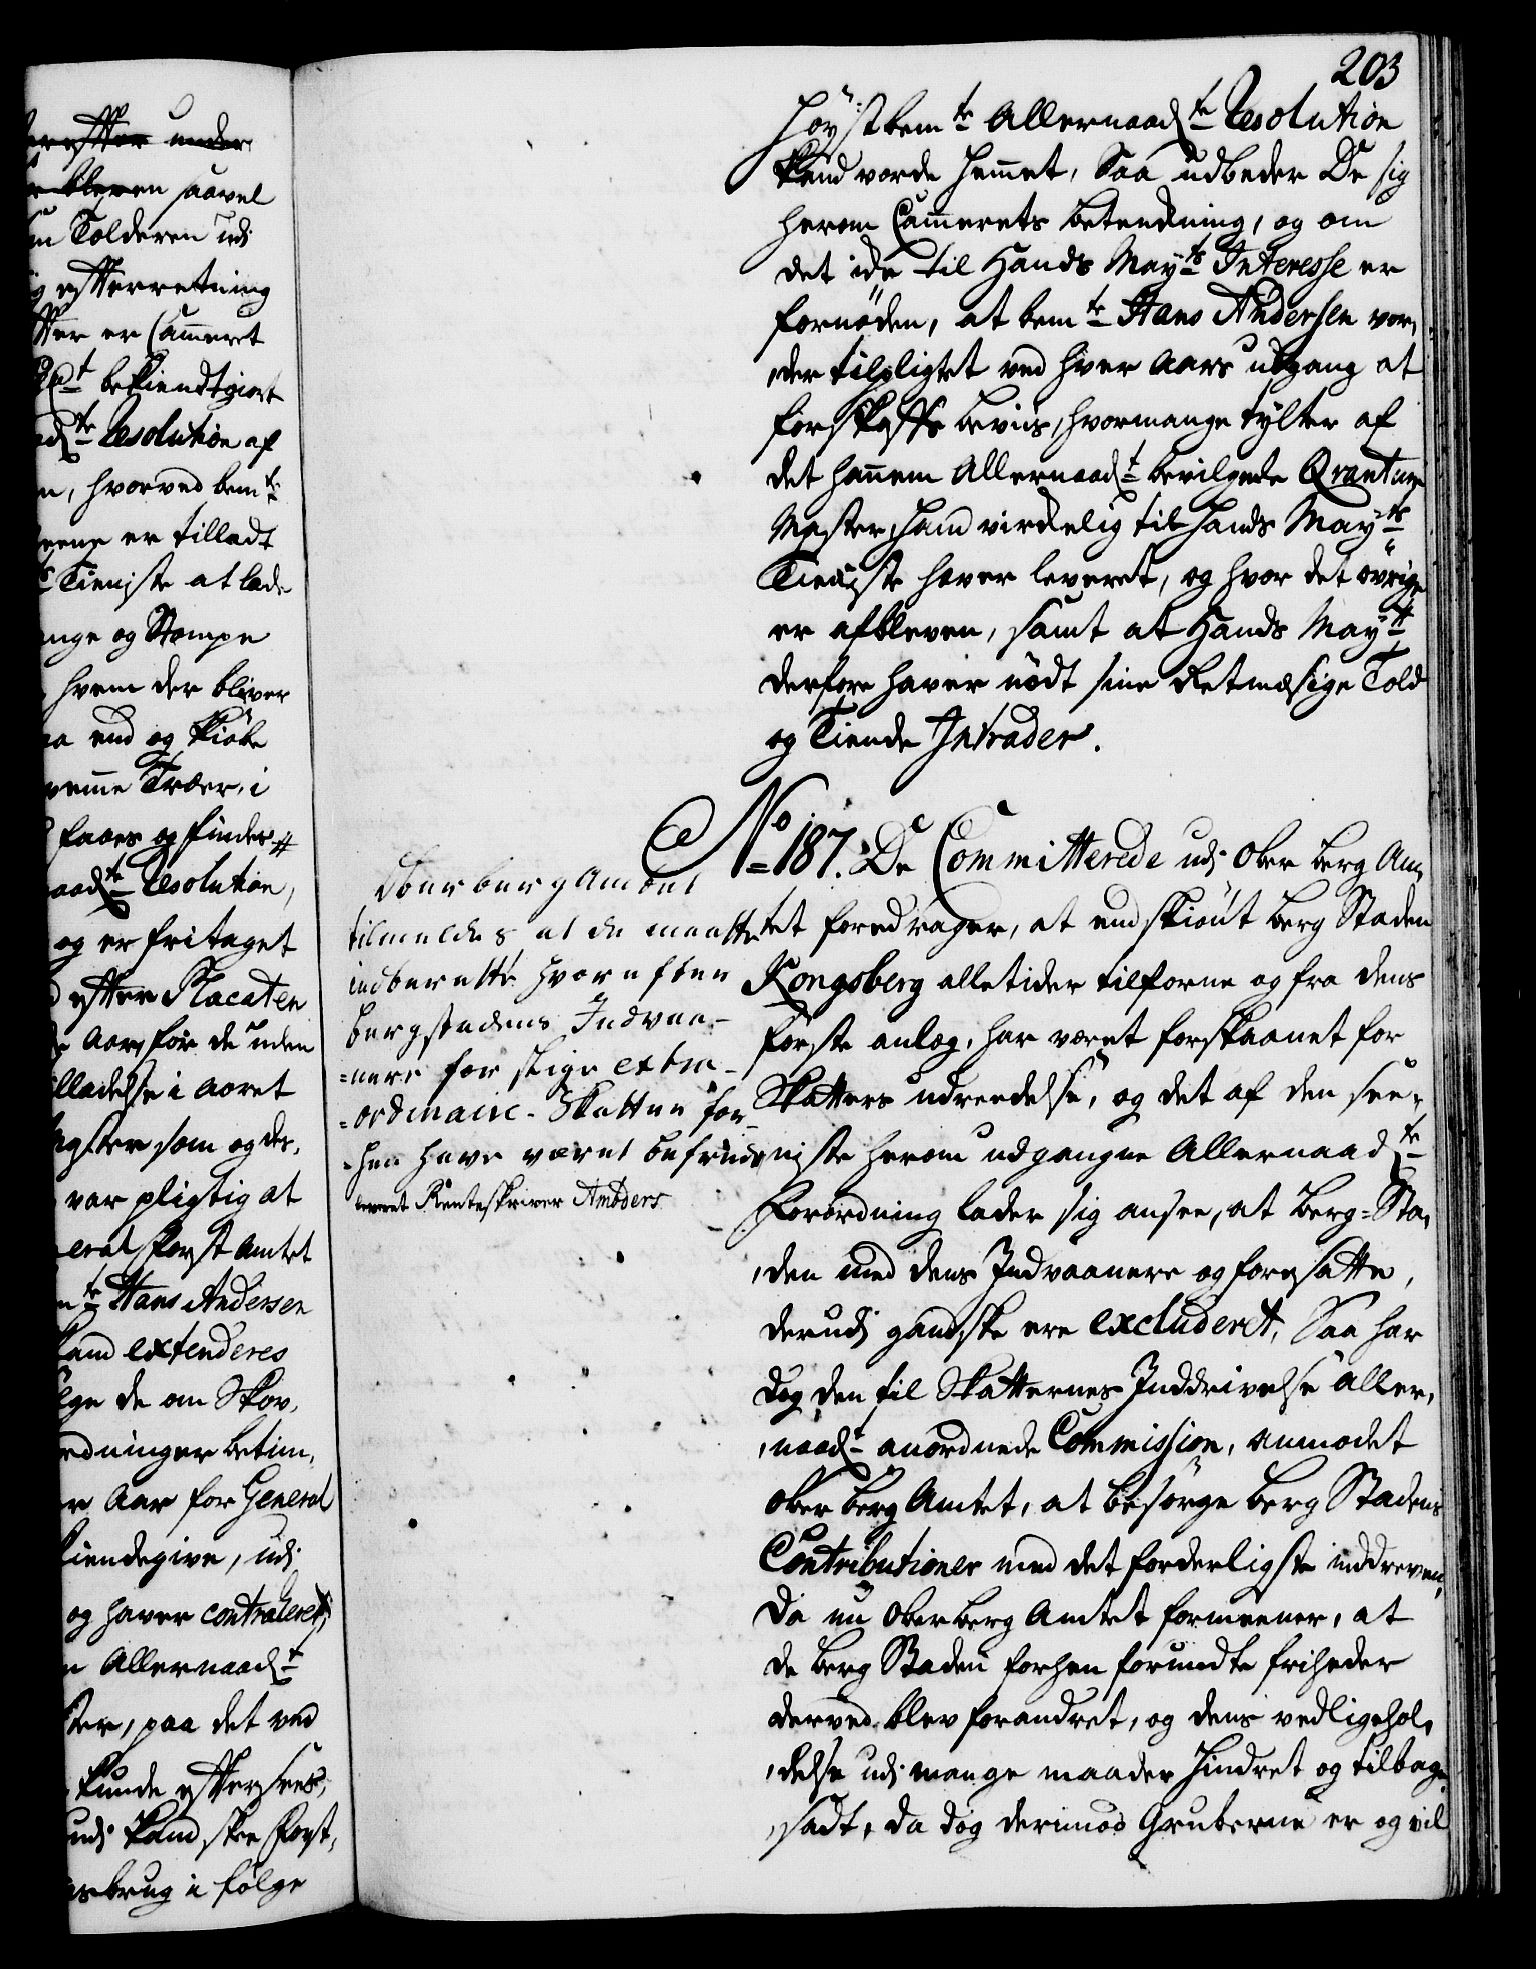 203
høystbem:te Allernaad:te Resolution
kand vorde hemmet, Saa udbeder De sig
herom Cammerets betenkning, og om
det icke til Hands May:ts Interesse er
fornøden, at bem:te Hans Andersen vor,
,der tilpligtet ved hver Aars udgang at
forskaffe beviis, hvormange tylter af
det hannem Allernaad:t bevilgede Qvantum
Master, hand virkelig til Hands May:ts
Tieniste haver leveret, og hvor det øvrige
er afbleven, samt at Hands May:tt
derfore haver nødt sine Retmæsige Told
og Tiende Intrader.
No 187. De Committerede udj Ober Berg Am,
tet foredrager, at endskiønt Berg Staden
Kongsberg alletider tilforne og fra dens
første anlæg, har været forskaanet for
Skatters udreedelse, og det af den see,
niste herom udgangne Allernaad:te
Forordning lader sig ansee, at Berg=Sta,
,den med dens Indvaanere og foresatte,
derudj gandske ere excluderet, Saa har
dog den til Skatternes Inddrivelse Aller,
,naad:t anordnede Commission, anmodet
Ober Berg Amtet, at besørge Berg Stadens
Contributioner med det forderligste inddreven,
Da nu Ober Berg Amtet formeener, at
de Berg Staden forhen forundte friheder
derved blev forandret, og dens vedligehol,
,delse udj mange maader hindret og tilbage
,sadt, da dog derimod Gruberne er og vil
Oberberg Amtet
tilmeldes at de maatte
indberette hvorefter
bergstadens Indvaa-
=nere for slige extra-
=ordinaire Skatter for-
=hen have været befriede
leveret Renteskriver Ambders
under
bleven saavel
Tolderen udj
efterretning
er Cammeret
bekiendtgiort
Resolution af
hvorved bem:te
er tilladt
Tieniste at lade
og Stompe
hvem der bliver
end og kiøbe
Træer, i
faaes og findes
Resolution,
og er fritaget
efter Placaten
Aar, før de uden
i Aaret
som og des,
var pligtig at
Forst Amtet
Hans Andersen
extenderes
de om Skov,
betim,
Aar for General
tiendegive, udj
og haver contraleret
Allernaad:t
paa det ved
kunde eftersees,
udj kand skee Forst,
i følge